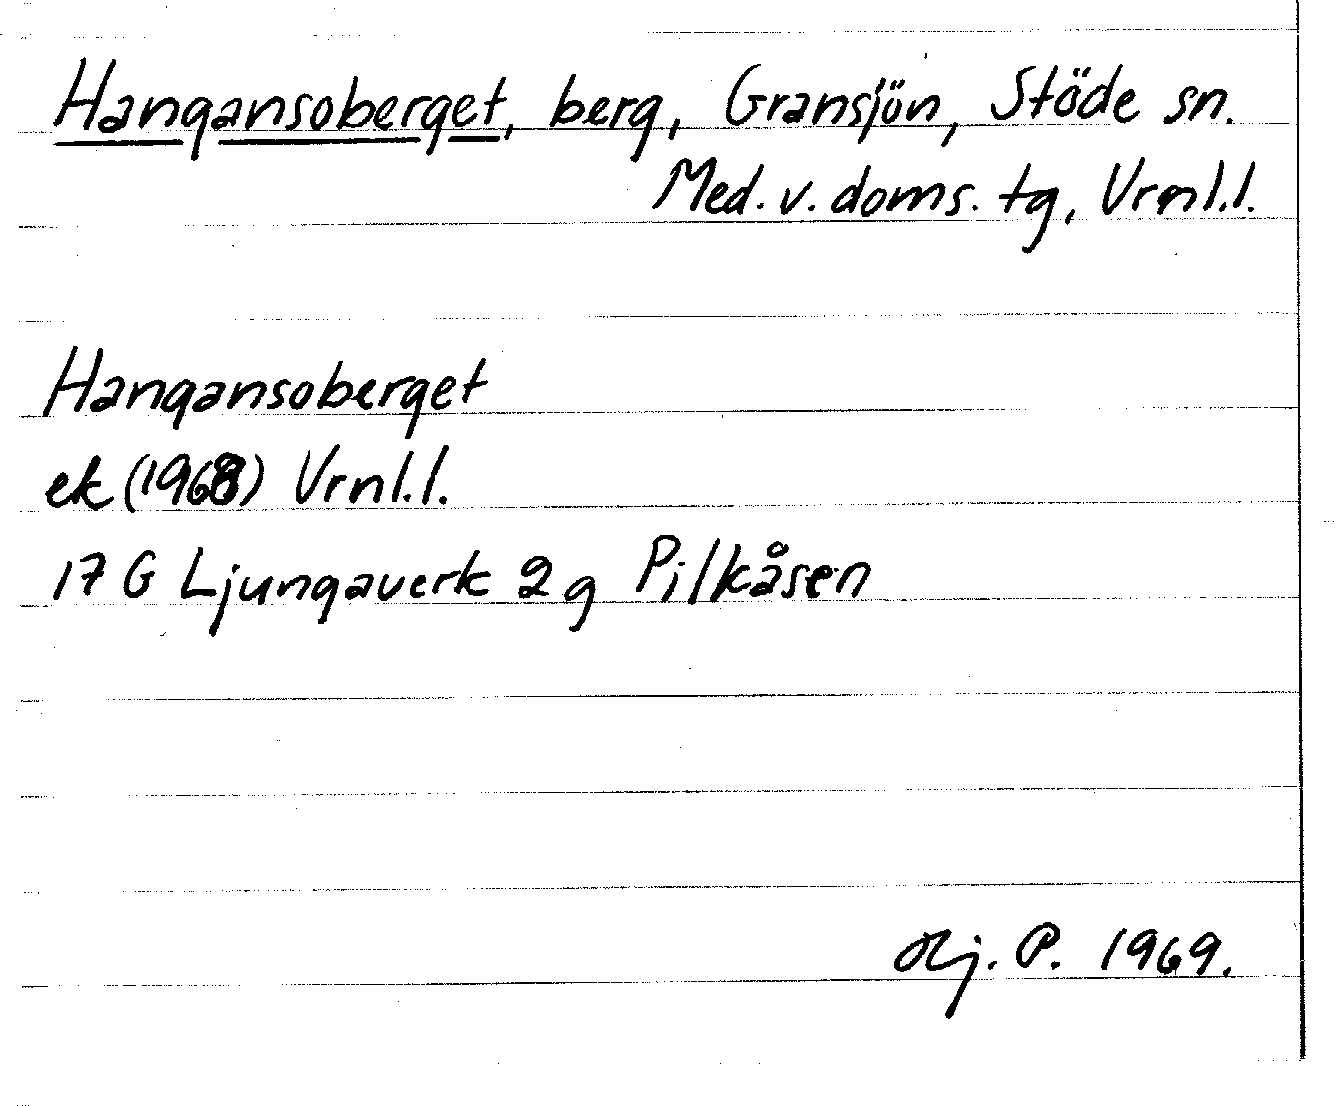 Hangansoberget, berg, Gransjön, Stöde sn.
Med. v. doms. tg, Vrnl.l.
Hangansoberget
ek (1968) Vrnl.l.
17 G Ljungaverk 2 g Pilkåsen
P. 1969.